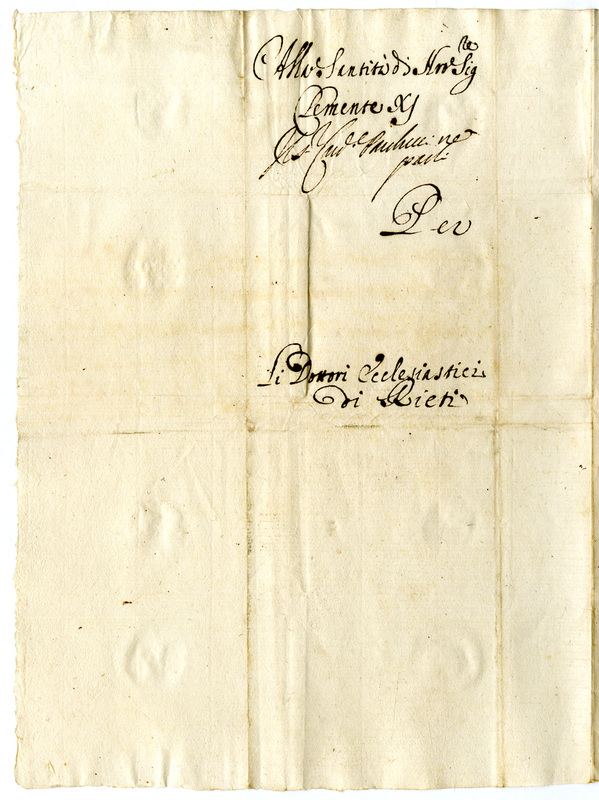 Alla Santità di Nro Sigre
Clemente XI
Card.e Paulucci ne
parli
Per
Li Dottori Ecclesiastici
di Rieti